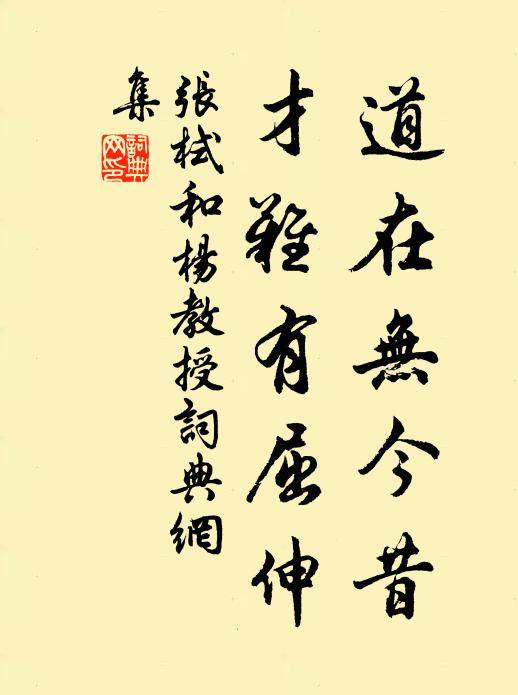 道在無今昔
才難有屈伸
張栻和楊教授詞典網
集
詞典
网印